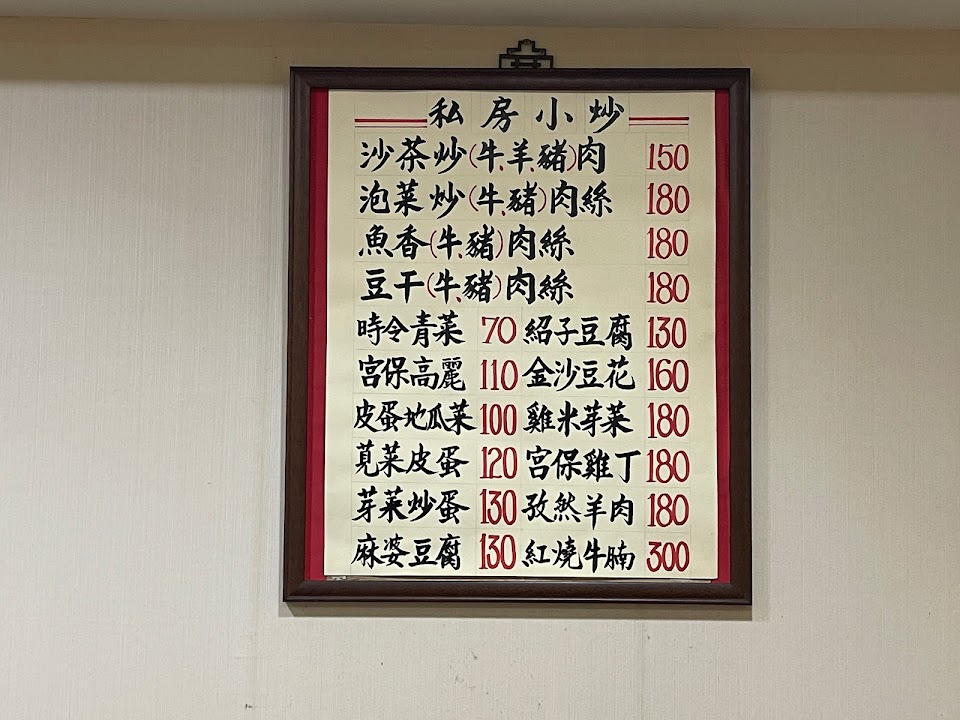 私房小炒
沙茶炒(牛、羊、豬)肉 150
泡菜炒(牛、豬)肉絲 180
魚香(牛、豬)肉絲 180
豆干(牛、豬)肉絲 180
時令青菜 70 紹子豆腐 130
宮保高麗 110 金沙豆花 160
皮蛋地瓜菜 100 雞米芽菜 180
莧菜皮蛋 120 宮保雞丁 180
芽菜炒蛋 130 孜然羊肉 180
麻婆豆腐 130 紅燒牛腩 300